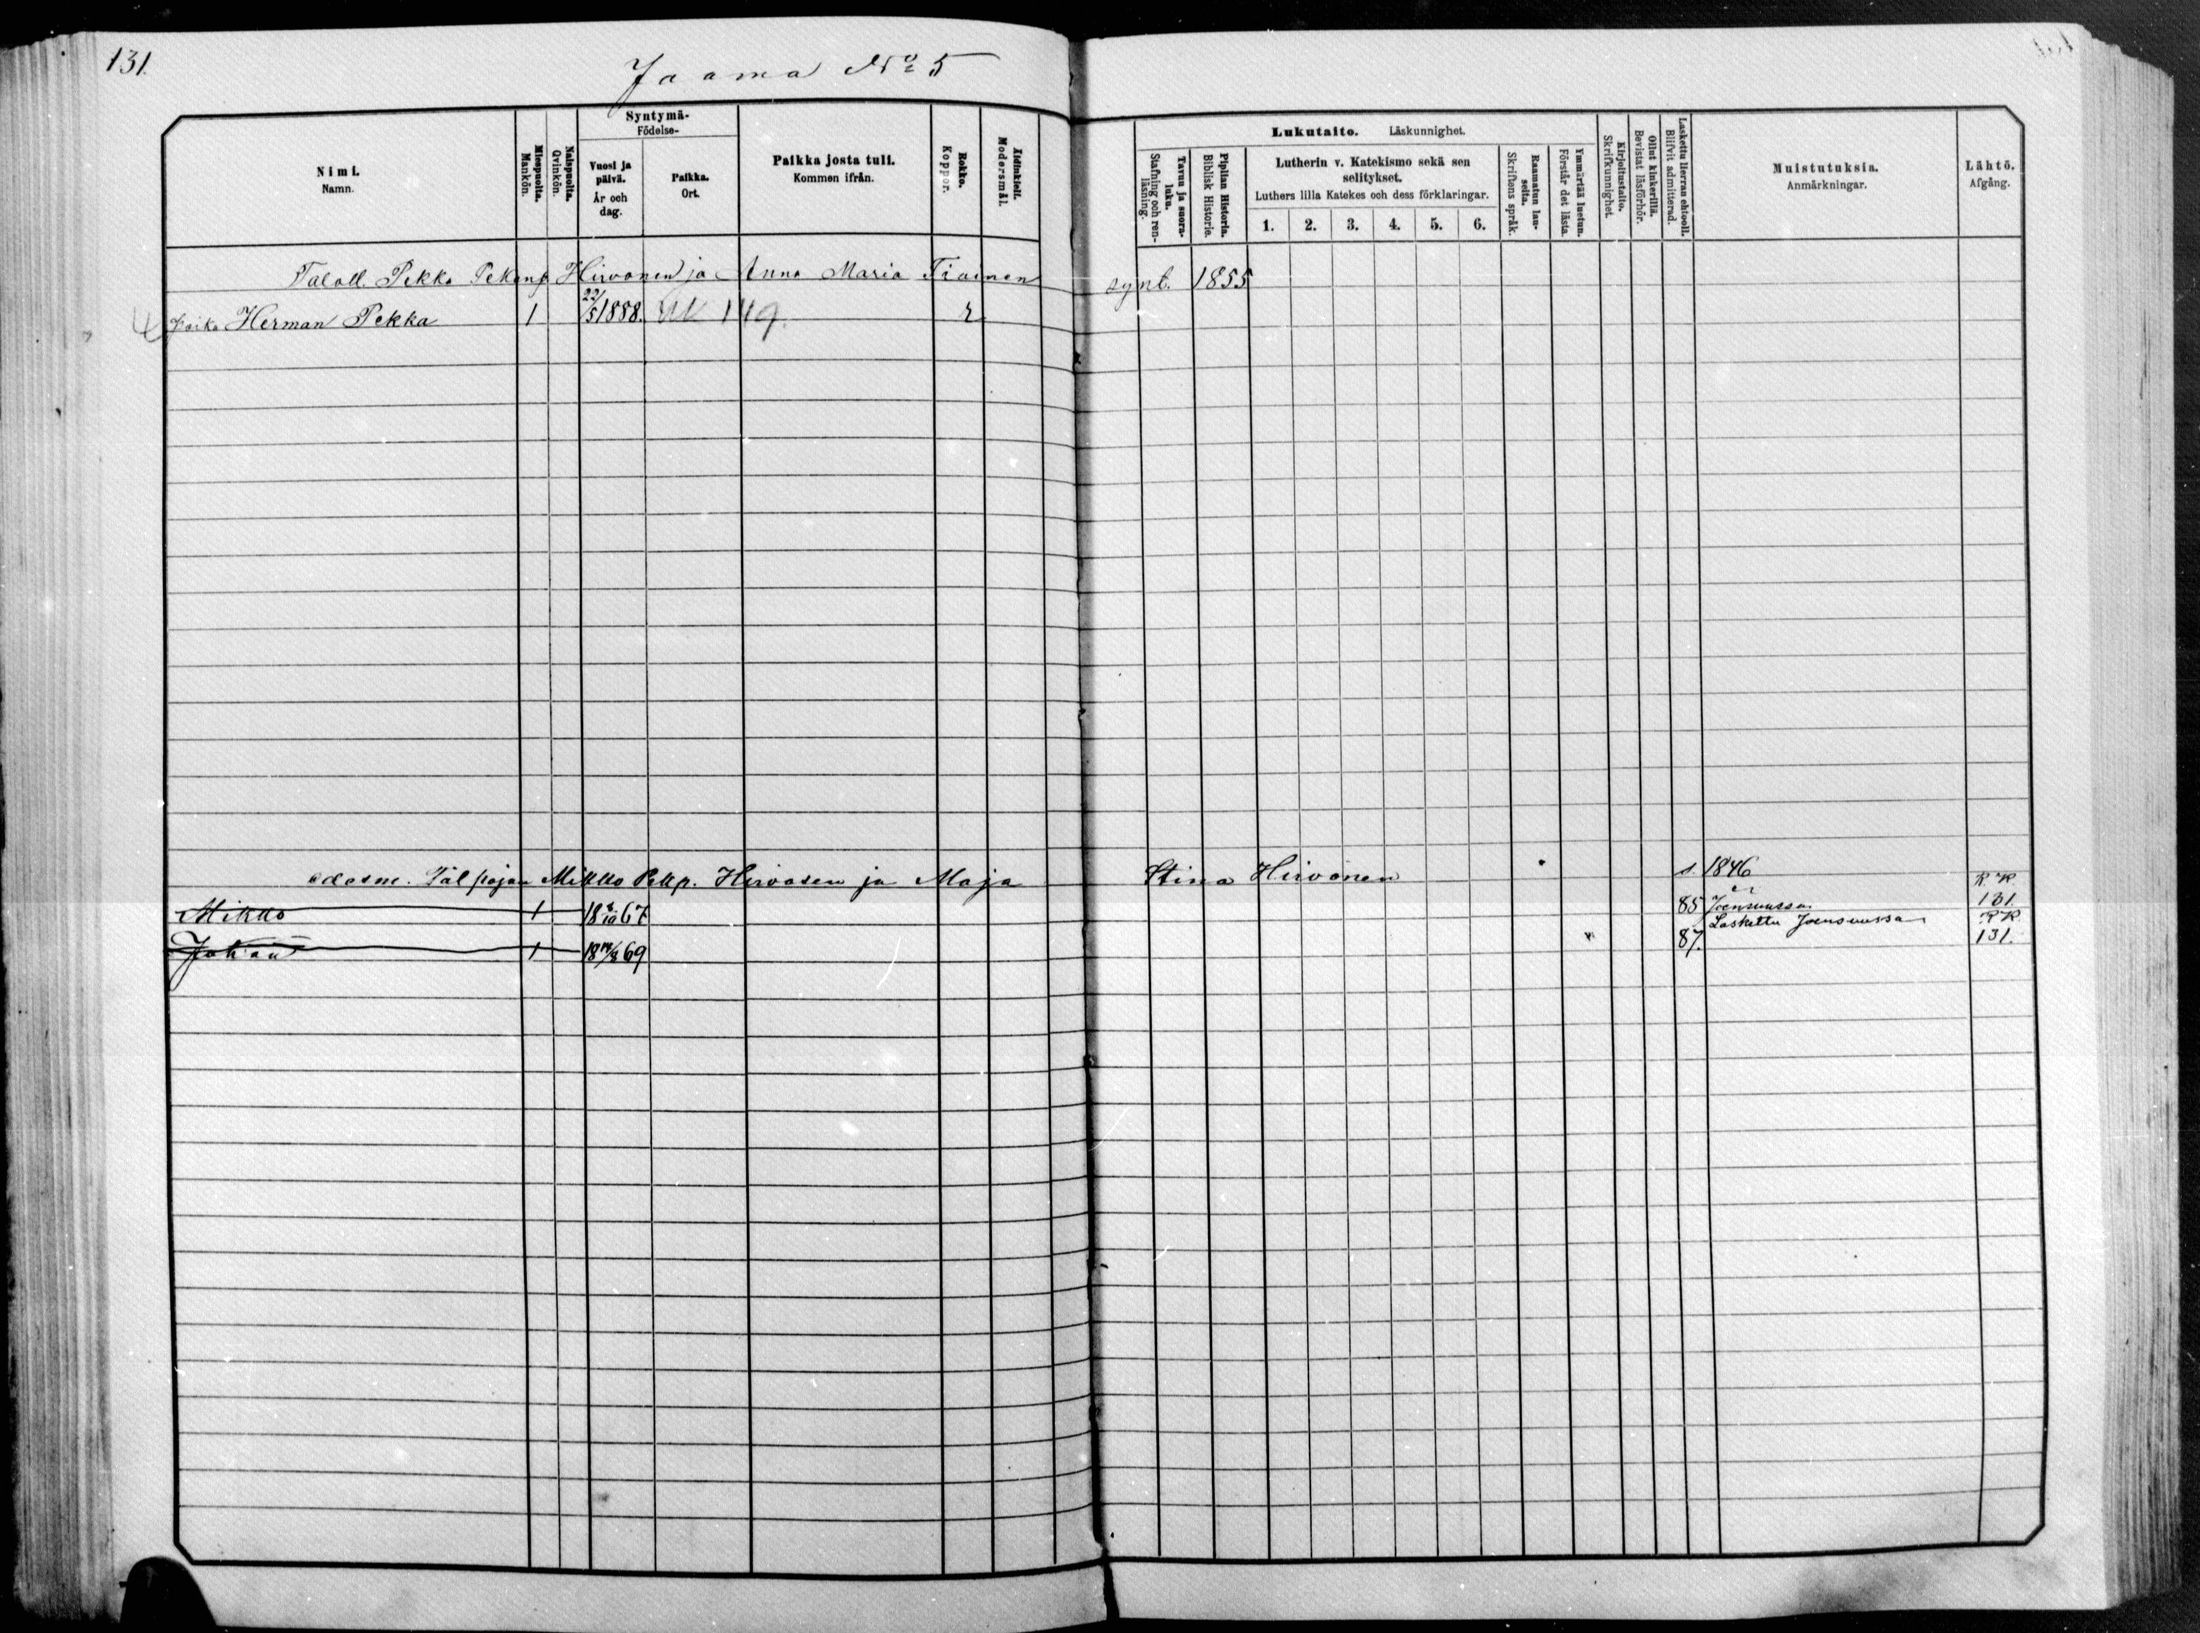 131.
Jaama No 5
Nimi.
Namn.
Miespuolta.
Mankön.
Naispuolta.
Qvinkön.
Syntymä-
Födelse-
Vuosi ja
päivä.
År och
dag.
Paikka.
Ort.
Paikka josta tuli.
Kommen ifrån.
Rokko.
Koppor.
Äidinkieli.
Modersmål.
Lukutaito. Läskunnighet.
Tavuu ja suora-
luku.
Stafning och ren-
läsning.
Piplian Historia.
Biblisk Historie.
Lutherin v. Katekismo sekä sen
selitykset.
Luthers lilla Katekes och dess förklaringar.
1. 2. 3. 4. 5. 6.
Raamatun lau-
seita.
Skriftens språk.
Ymmärtää luetun.
Förstår det lästa.
Kirjoitustaito.
Skrifkunnighet.
Ollut kinkerillä.
Bevistat läsförhör.
Laskettu Herran ehtooll.
Blifvit admitterad.
Muistutuksia.
Anmärkningar.
Lähtö.
Afgång.
Taloll. Pekka Pekanp. Hirvonen ja Anna Maria Tiainen synt. 1855
poika Herman Pekka 1 22/5 1888. 119. r
edesm. Tal pojan Mikko Pekkp. Hirvosen ja Maja Stina Hirvonen s. 1846
Mikko 1 18 8/10 67 85 Joensuussa R. K. 131
Johan 1 18 14/8 69 87. Laskettu Joensuussa R K 131.